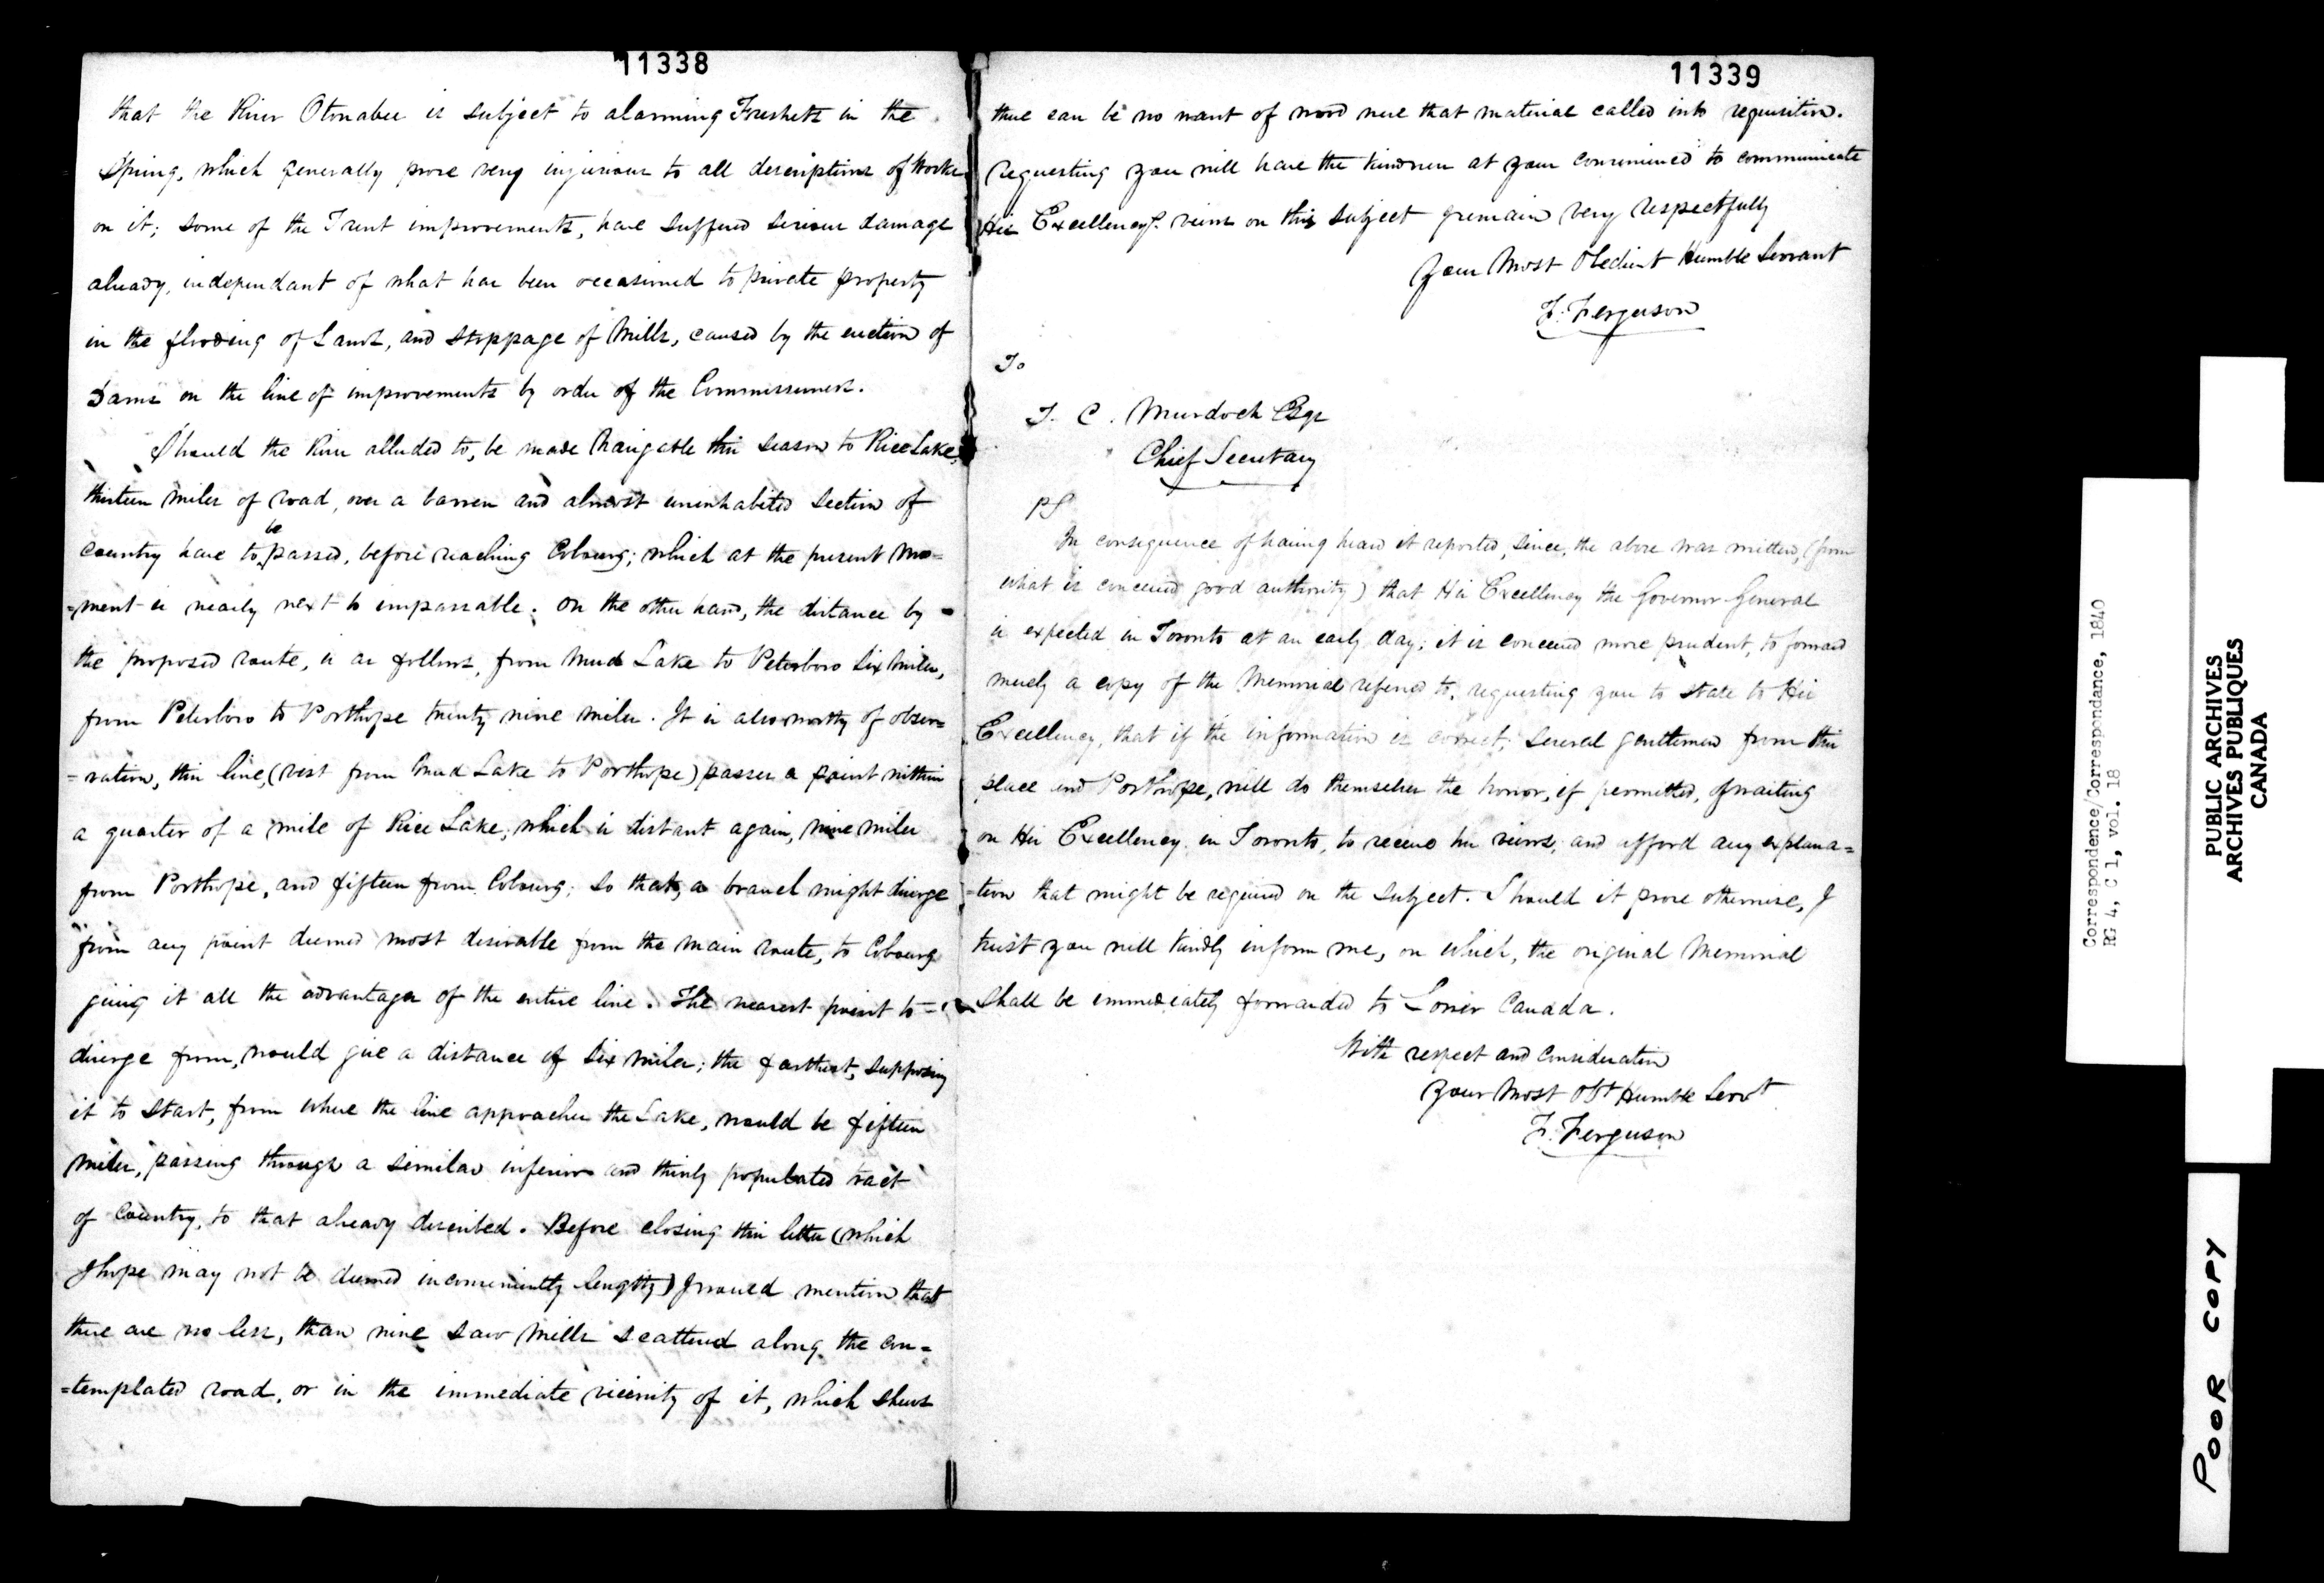 11338
that the River Otonabee is subject to alarming Freshets in the
Spring, which generally prove very injurious to all descriptions of Works
on it; some of the Trent improvements, have suffered serious damage
already, independant of what has been occasioned to private property
in the flooding of Lands, and stoppage of Mills, caused by the erection of
Dams on the line of improvements by order of the Commissioners.
Should the River alluded to, be made Navigable this season to Rice Lake,
thirteen miles of road, over a barren and almost uninhabited section of
country have to be passed, before reaching Cobourg; which at the present mo=
=ment is nearly next to impassable. On the other hand, the distance by
the proposed route, is as follows, from Mud Lake to Peterboro Six Miles,
from Peterboro to Porthope twenty nine miles. It is also worthy of obser=
=vation, this line, (vizt from Mud Lake to Porthope) passes a point within
a quarter of a mile of Rice Lake, which is distant again, nine miles
from Porthope, and fifteen from Cobourg; so that, a branch might diverge
from any point deemed most desirable from the main route, to Cobourg
giving it all the advantages of the entire line. The nearest point to
diverge from, would give a distance of Six Miles; the farthest, supposing
it to start, from where the line approaches the Lake, would be fifteen
Miles, passing through a similar inferior and thinly populated tract
of Country, to that already described. Before closing this letter (which
I hope may not be deemed inconveniently lengthy) I would mention that
there are no less, than nine Saw Mills scattered along the con=
=templated road, or in the immediate vicinity of it, which shews
11339
there can be no want of wood were that material called into requisition.
Requesting you will have the kindness at your convenience to communicate
His Excellency's views on this subject I remain very respectfully
Your Most Obedient Humble Servant
F. Ferguson
To
T. C. Murdoch Esqr
Chief Secretary
PS
In consequence of having heard it reported, since, the above was written, (from
what is conceived good authority) that His Excellency the Governor General
is expected in Toronto at an early day; it is conceived more prudent, to forward
merely a copy of the Memorial refered to, requesting you to state to His
Excellency, that if the information is correct, several gentlemen from this
place and Porthope, will do themselves the honor, if permitted, of waiting
on His Excellency in Toronto, to receive his views, and afford any explana=
=tion that might be required on the subject. Should it prove otherwise, I
trust you will kindly inform me, on which, the original Memorial
shall be immediately forwarded to Lower Canada.
With respect and Consideration
Your Most Obt Humble Servt
F. Ferguson
Correspondence/Correspondance, 1840
RG 4, C 1, vol. 18
PUBLIC ARCHIVES
ARCHIVES PUBLIQUES
CANADA
POOR COPY